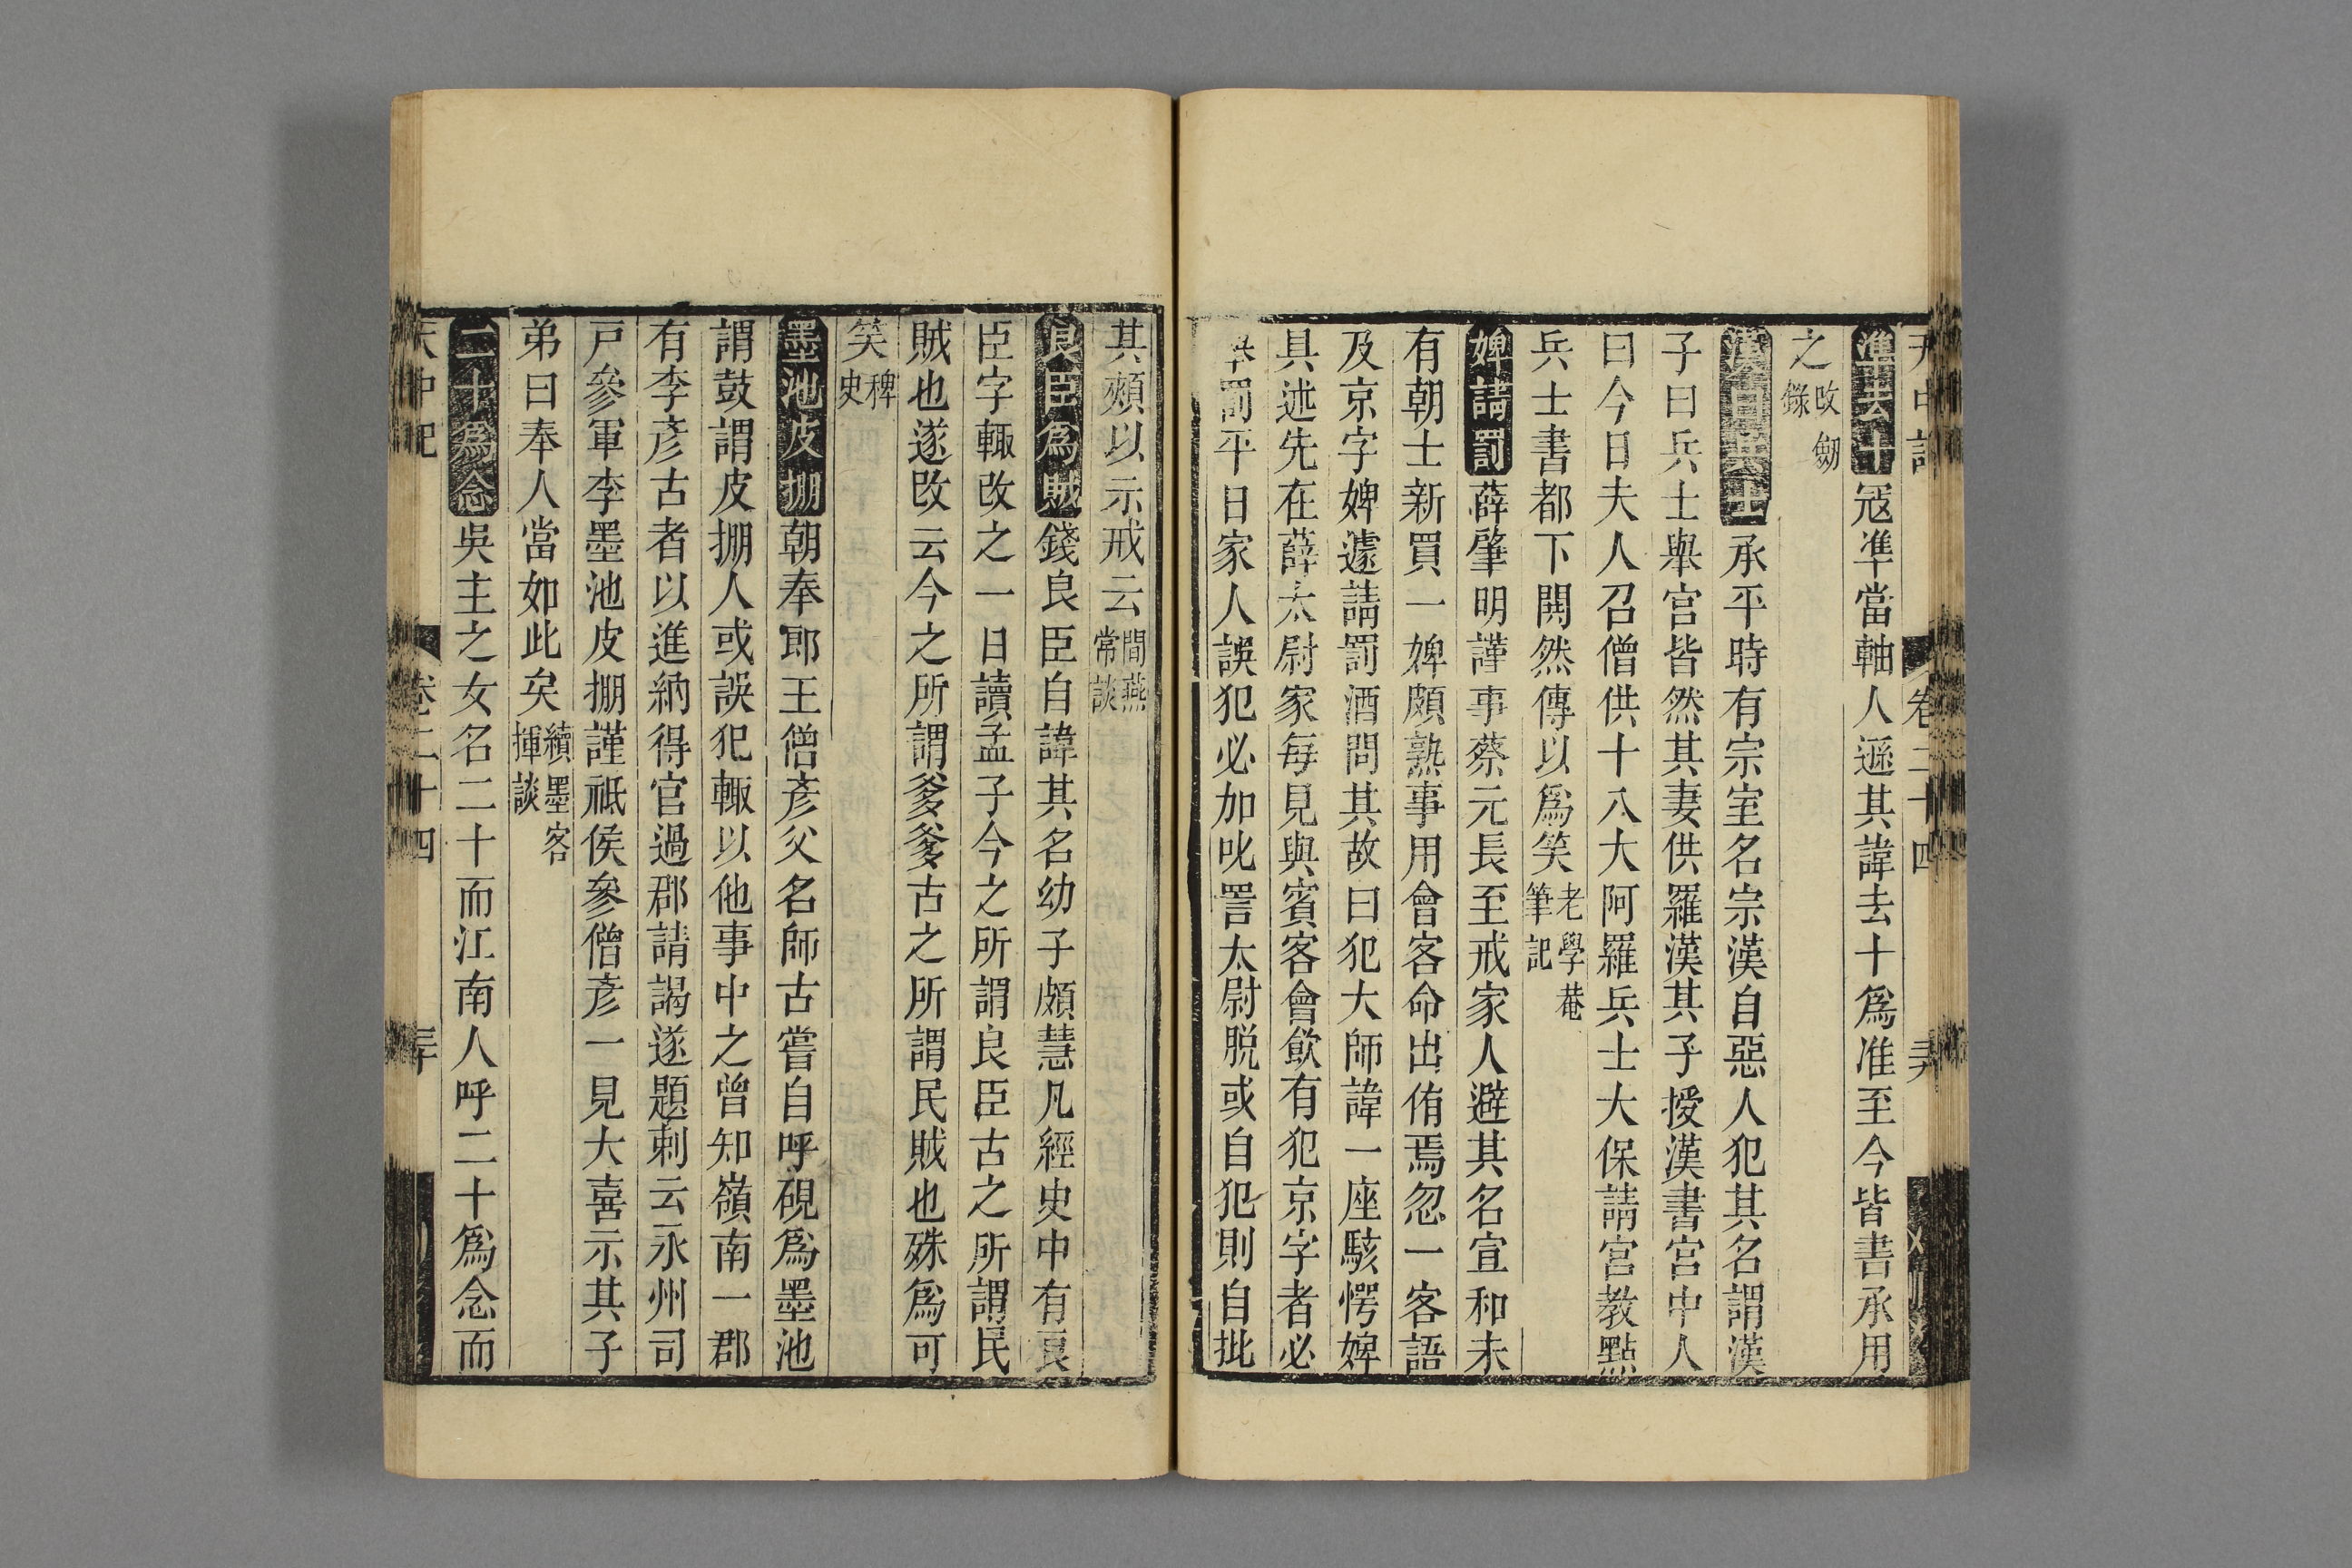 準去十冦準當軸人遜其諱去十爲准至今皆書承用
之攺劒錄
漢自兵士承平時有宗室名宗漢自惡人犯其名謂漢
子曰兵士舉宮皆然其妻供羅漢其子授漢書宮中人
曰今日夫人召僧供十八大阿羅兵士大保請宮教點
兵士書都下閧然傳以爲笑老學菴筆記
婢請罰薛肇明謹事蔡元長至戒家人避其名宣和未
有朝士新買一婢頗熟事用會客命出侑焉忽一客語
及京字婢遽請罰酒問其故曰犯大師諱一座駭愕婢
具述先在薛太尉家每見與賓客會飲有犯京字者必
舉罰平日家人誤犯必加叱詈太尉脱或自犯則自批
其頰以示戒云間燕常談
良臣爲賊錢良臣自諱其名幼子頗慧凡經史中有良
臣字輙攺之一日讀孟子今之所謂良臣古之所謂民
賊也遂攺云今之所謂爹爹古之所謂民賊也殊爲可
笑稗史
墨池皮掤朝奉郎王僧彥父名師古嘗自呼硯爲墨池
謂鼓謂皮掤人或誤犯輙以他事中之曾知嶺南一郡
有李彥古者以進納得官過郡請謁遂題刺云永州司
戸參軍李墨池皮掤謹祗侯參僧彥一見大喜示其子
弟曰奉人當如此矣續墨客揮談
二十爲念吳主之女名二十而江南人呼二十爲念而
天中記 卷二十四 三十